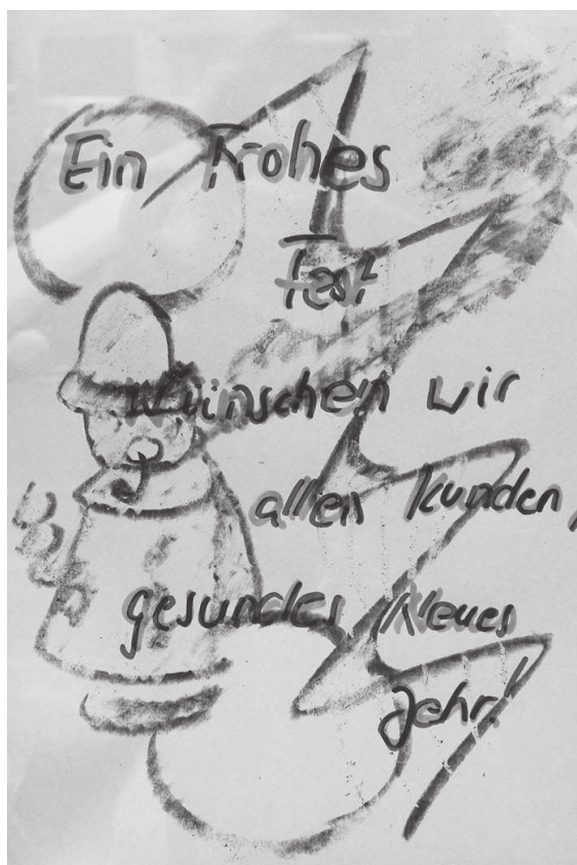 Ein Frohes
Fest
Wünschen wir
allen Kunden,
gesundes Neues
Jahr!